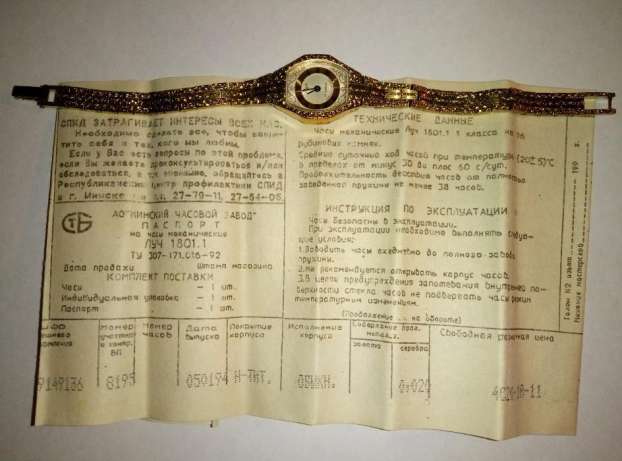 СПИД ЗАТРАГИВАЕТ ИНТЕРЕСЫ ВСЕХ НАС.
Необходимо сделать все, чтобы защи-
тить себя и тех, кого мы любим.
Если у Вас есть вопросы по этой проблеме,
если Вы желаете проконсультироваться и/или
обследоваться, в т.ч. анонимно, обращайтесь в
Республиканский центр профилактики СПИД
в г. Минске
27-79-11, 27-54-06.
СТБ
АО"МИНСКИЙ ЧАСОВОЙ ЗАВОД"
ПАСПОРТ
на часы механические
ЛУЧ 1801.1
ТУ 307-171.016-92
Дата продажи Штамп магазина
КОМПЛЕКТ ПОСТАВКИ
Часы — 1 шт.
Индивидуальная упаковка — 1 шт.
Паспорт — 1 шт.
ТЕХНИЧЕСКИЕ ДАННЫЕ
Часы механические Луч 1801.1 1 класса на 16
рубиновых камнях.
Средний суточный ход часов при температуре (20±5)°С
в пределах от минус 30 до плюс 60 с/сут.
Продолжительность действия часов от полностью
заведенной пружины не менее 38 часов.
ИНСТРУКЦИЯ ПО ЭКСПЛУАТАЦИИ
Часы безопасны в эксплуатации.
При эксплуатации необходимо выполнять следую-
щие условия:
1.Заводить часы ежедневно до полного завода
пружины.
2.Не рекомендуется открывать корпус часов.
3.В целях предупреждения запотевания внутренней по-
верхности стекла часов не подвергать часы резким
температурным изменениям.
(Продолжение на обороте)
Номер упаковщ. и контр. ВП
Номер часов
Дата выпуска
Покрытие корпуса
Исполнение корпуса
Содержание драг. метал., г.
золота
серебра
Свободная розничная цена
9149136
8195
050194
Н-ТИТ.
ОБЫКН.
0.024
Талон №2 изъят
199 г.